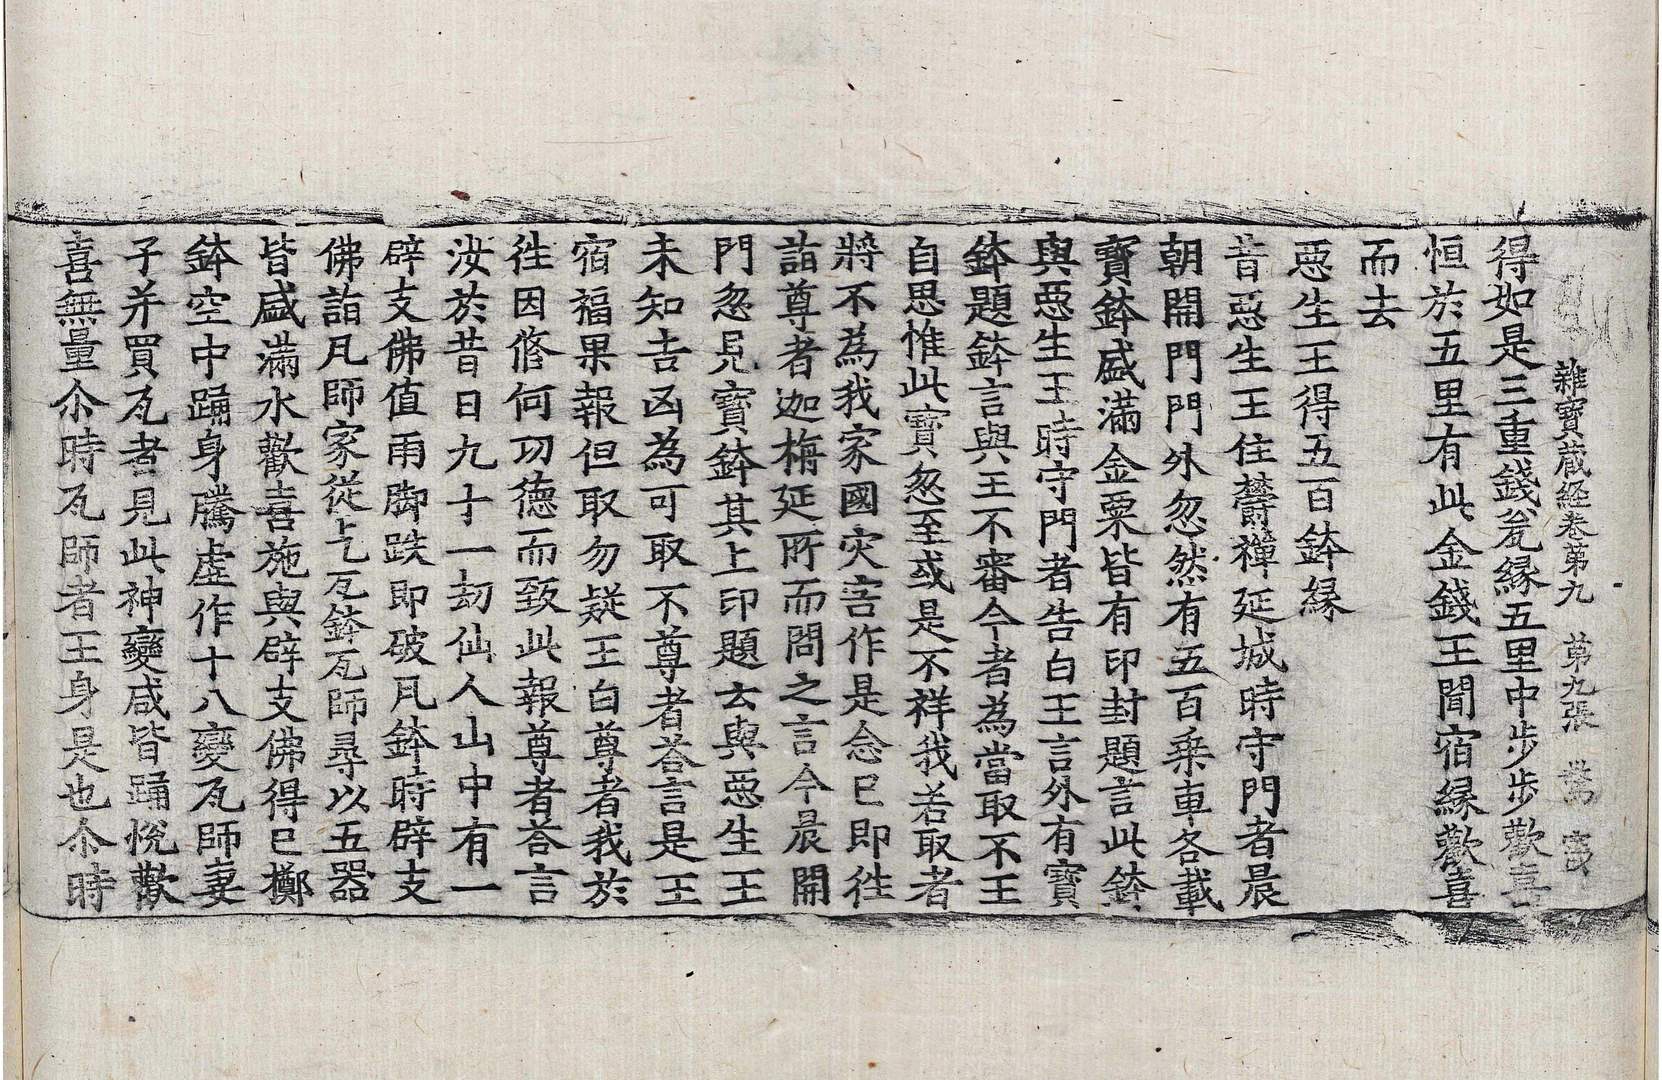 雜寶蔵経卷苐九　苐九張
得如是三重錢瓮縁五里中步步歡喜
恒於五里有此金錢王聞宿縁歡喜
而去
惡生王得五百鉢縁
昔惡生王住欝禪延城時守門者晨
朝開門門外忽然有五百乗車各載
寶鉢盛滿金粟皆有印封題言此鉢
與惡生王時守門者告白王言外有寶
鉢題鉢言與王不審今者為當取不王
自思惟此寶忽至或是不祥我若取者
將不為我家國灾害作是念已即徃
詣尊者迦栴延所而問之言今晨開
門忽見寶鉢其上印題云與惡生王
未知吉凶為可取不尊者荅言是王
宿福果報但取勿疑王白尊者我於
徃因修何功德而致此報尊者荅言
汝於昔日九十一劫仙人山中有一
辟支佛值雨脚跌即破凡鉢時辟支
佛詣凡師家從乞瓦鉢瓦師尋以五器
皆盛滿水歡喜施與辟支佛得已擲
鉢空中踊身騰虛作十八變瓦師妻
子并買瓦者見此神變咸皆踊悅歡
喜無量尒時瓦師者王身是也尒時